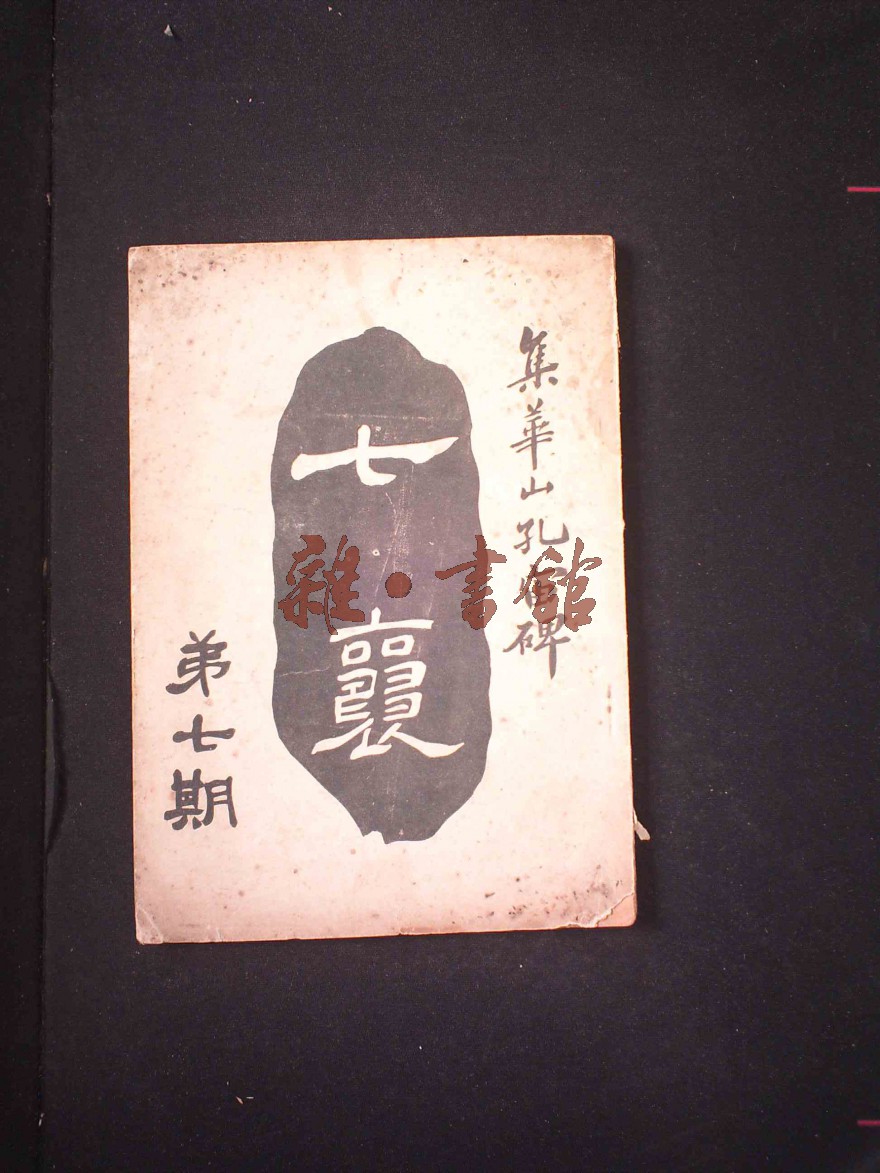 集華山孔宙碑
七襄
弟七期
雜·書館